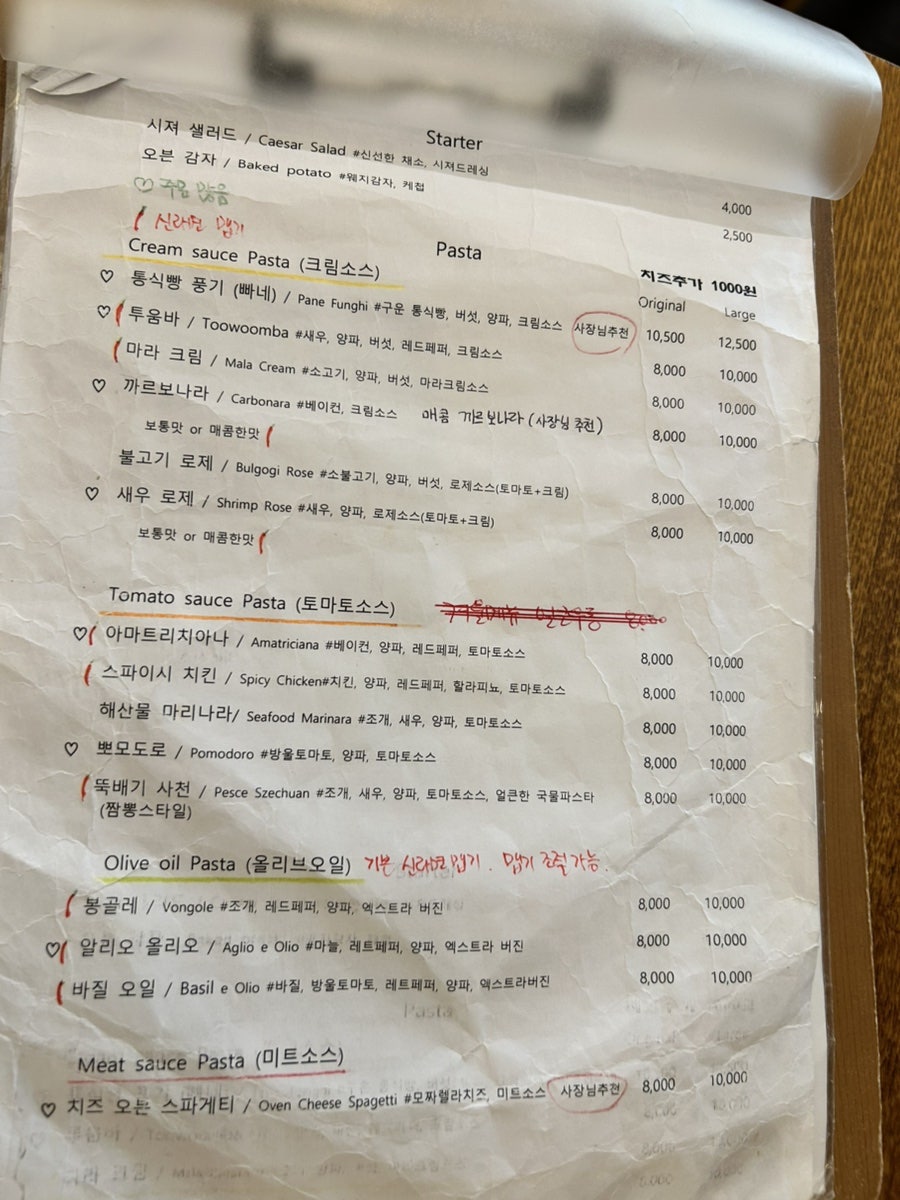 Starter
시져 샐러드 / Caesar Salad #신선한 채소, 시져드레싱 4,000
오븐 감자 / Baked potato #웨지감자, 케첩 2,500
♡ 주문 많음
신라면 맵기
Pasta
치즈추가 1000원
Cream sauce Pasta (크림소스) Original Large
♡ 통식빵 풍기 (빠네) / Pane Funghi #구운 통식빵, 버섯, 양파, 크림소스 사장님추천 10,500 12,500
♡ 투움바 / Toowoomba #새우, 양파, 버섯, 레드페퍼, 크림소스 8,000 10,000
마라 크림 / Mala Cream #소고기, 양파, 버섯, 마라크림소스 8,000 10,000
♡ 까르보나라 / Carbonara #베이컨, 크림소스 매콤 까르보나라 (사장님 추천) 8,000 10,000
보통맛 or 매콤한맛
불고기 로제 / Bulgogi Rose #소불고기, 양파, 버섯, 로제소스(토마토+크림) 8,000 10,000
♡ 새우 로제 / Shrimp Rose #새우, 양파, 로제소스(토마토+크림) 8,000 10,000
보통맛 or 매콤한맛
Tomato sauce Pasta (토마토소스)
♡ 아마트리치아나 / Amatriciana #베이컨, 양파, 레드페퍼, 토마토소스 8,000 10,000
스파이시 치킨 / Spicy Chicken#치킨, 양파, 레드페퍼, 할라피뇨, 토마토소스 8,000 10,000
해산물 마리나라/ Seafood Marinara #조개, 새우, 양파, 토마토소스 8,000 10,000
♡ 뽀모도로 / Pomodoro #방울토마토, 양파, 토마토소스 8,000 10,000
뚝배기 사천 / Pesce Szechuan #조개, 새우, 양파, 토마토소스, 얼큰한 국물파스타 8,000 10,000
(짬뽕스타일)
Olive oil Pasta (올리브오일) 기본 신라면 맵기. 맵기 조절 가능.
봉골레 / Vongole #조개, 레드페퍼, 양파, 엑스트라 버진 8,000 10,000
♡ 알리오 올리오 / Aglio e Olio #마늘, 레트페퍼, 양파, 엑스트라 버진 8,000 10,000
바질 오일 / Basil e Olio #바질, 방울토마토, 레트페퍼, 양파, 엑스트라버진 8,000 10,000
Meat sauce Pasta (미트소스)
♡ 치즈 오븐 스파게티 / Oven Cheese Spagetti #모짜렐라치즈, 미트소스 사장님추천 8,000 10,000